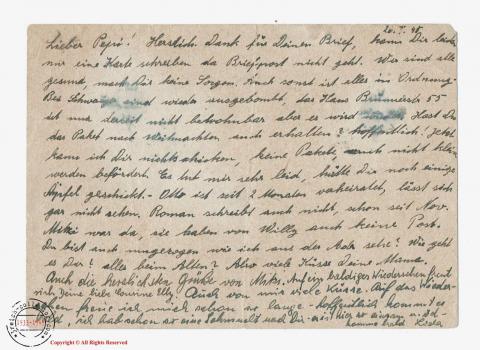 20.I.45.
Lieber Pepi! Herzlich Dank für Deinen Brief, kann Dir leider
nur eine Karte schreiben da Briefpost nicht geht. Wir sind alle
gesund, mach Dir keine Sorgen. Auch sonst ist alles in Ordnung.
Bei sind wieder ausgebombt, das Haus 55
ist uns derzeit nicht bewohnbar aber es wird Hast Du
das Paket nach Weihnachten auch erhalten? hoffentlich! Jetzt
kann ich Dir nichts schicken, keine Pakete, auch nicht klein
werden befördert. Es tut mir sehr leid, hätte Dir noch einige
Äpfel geschickt. - Otto ist seit 2 Monaten verheiratet, lässt sich
gar nicht sehen. Roman schreibt auch nicht, schon seit Nov.
Mitzi war da, sie haben von Willy auch keine Post.
Du bist auch umgezogen wie ich aus der sehe? Wie geht
es Dir? alles beim Alten? Also viele Küsse Deine Mama.
Auch die herzlichsten Grüße von Mitzi. Auf ein baldiges Wiedersehen freut
sich Deine Cousine Elly. Auch von mir viele Küsse. Auf das Wieder-
sehen freue ich mich schon so lange - hoffentlich kommt es
ich hab schon so eine Sehnsucht nach Dir -
komme bald
Copyright © All Rights Reserved